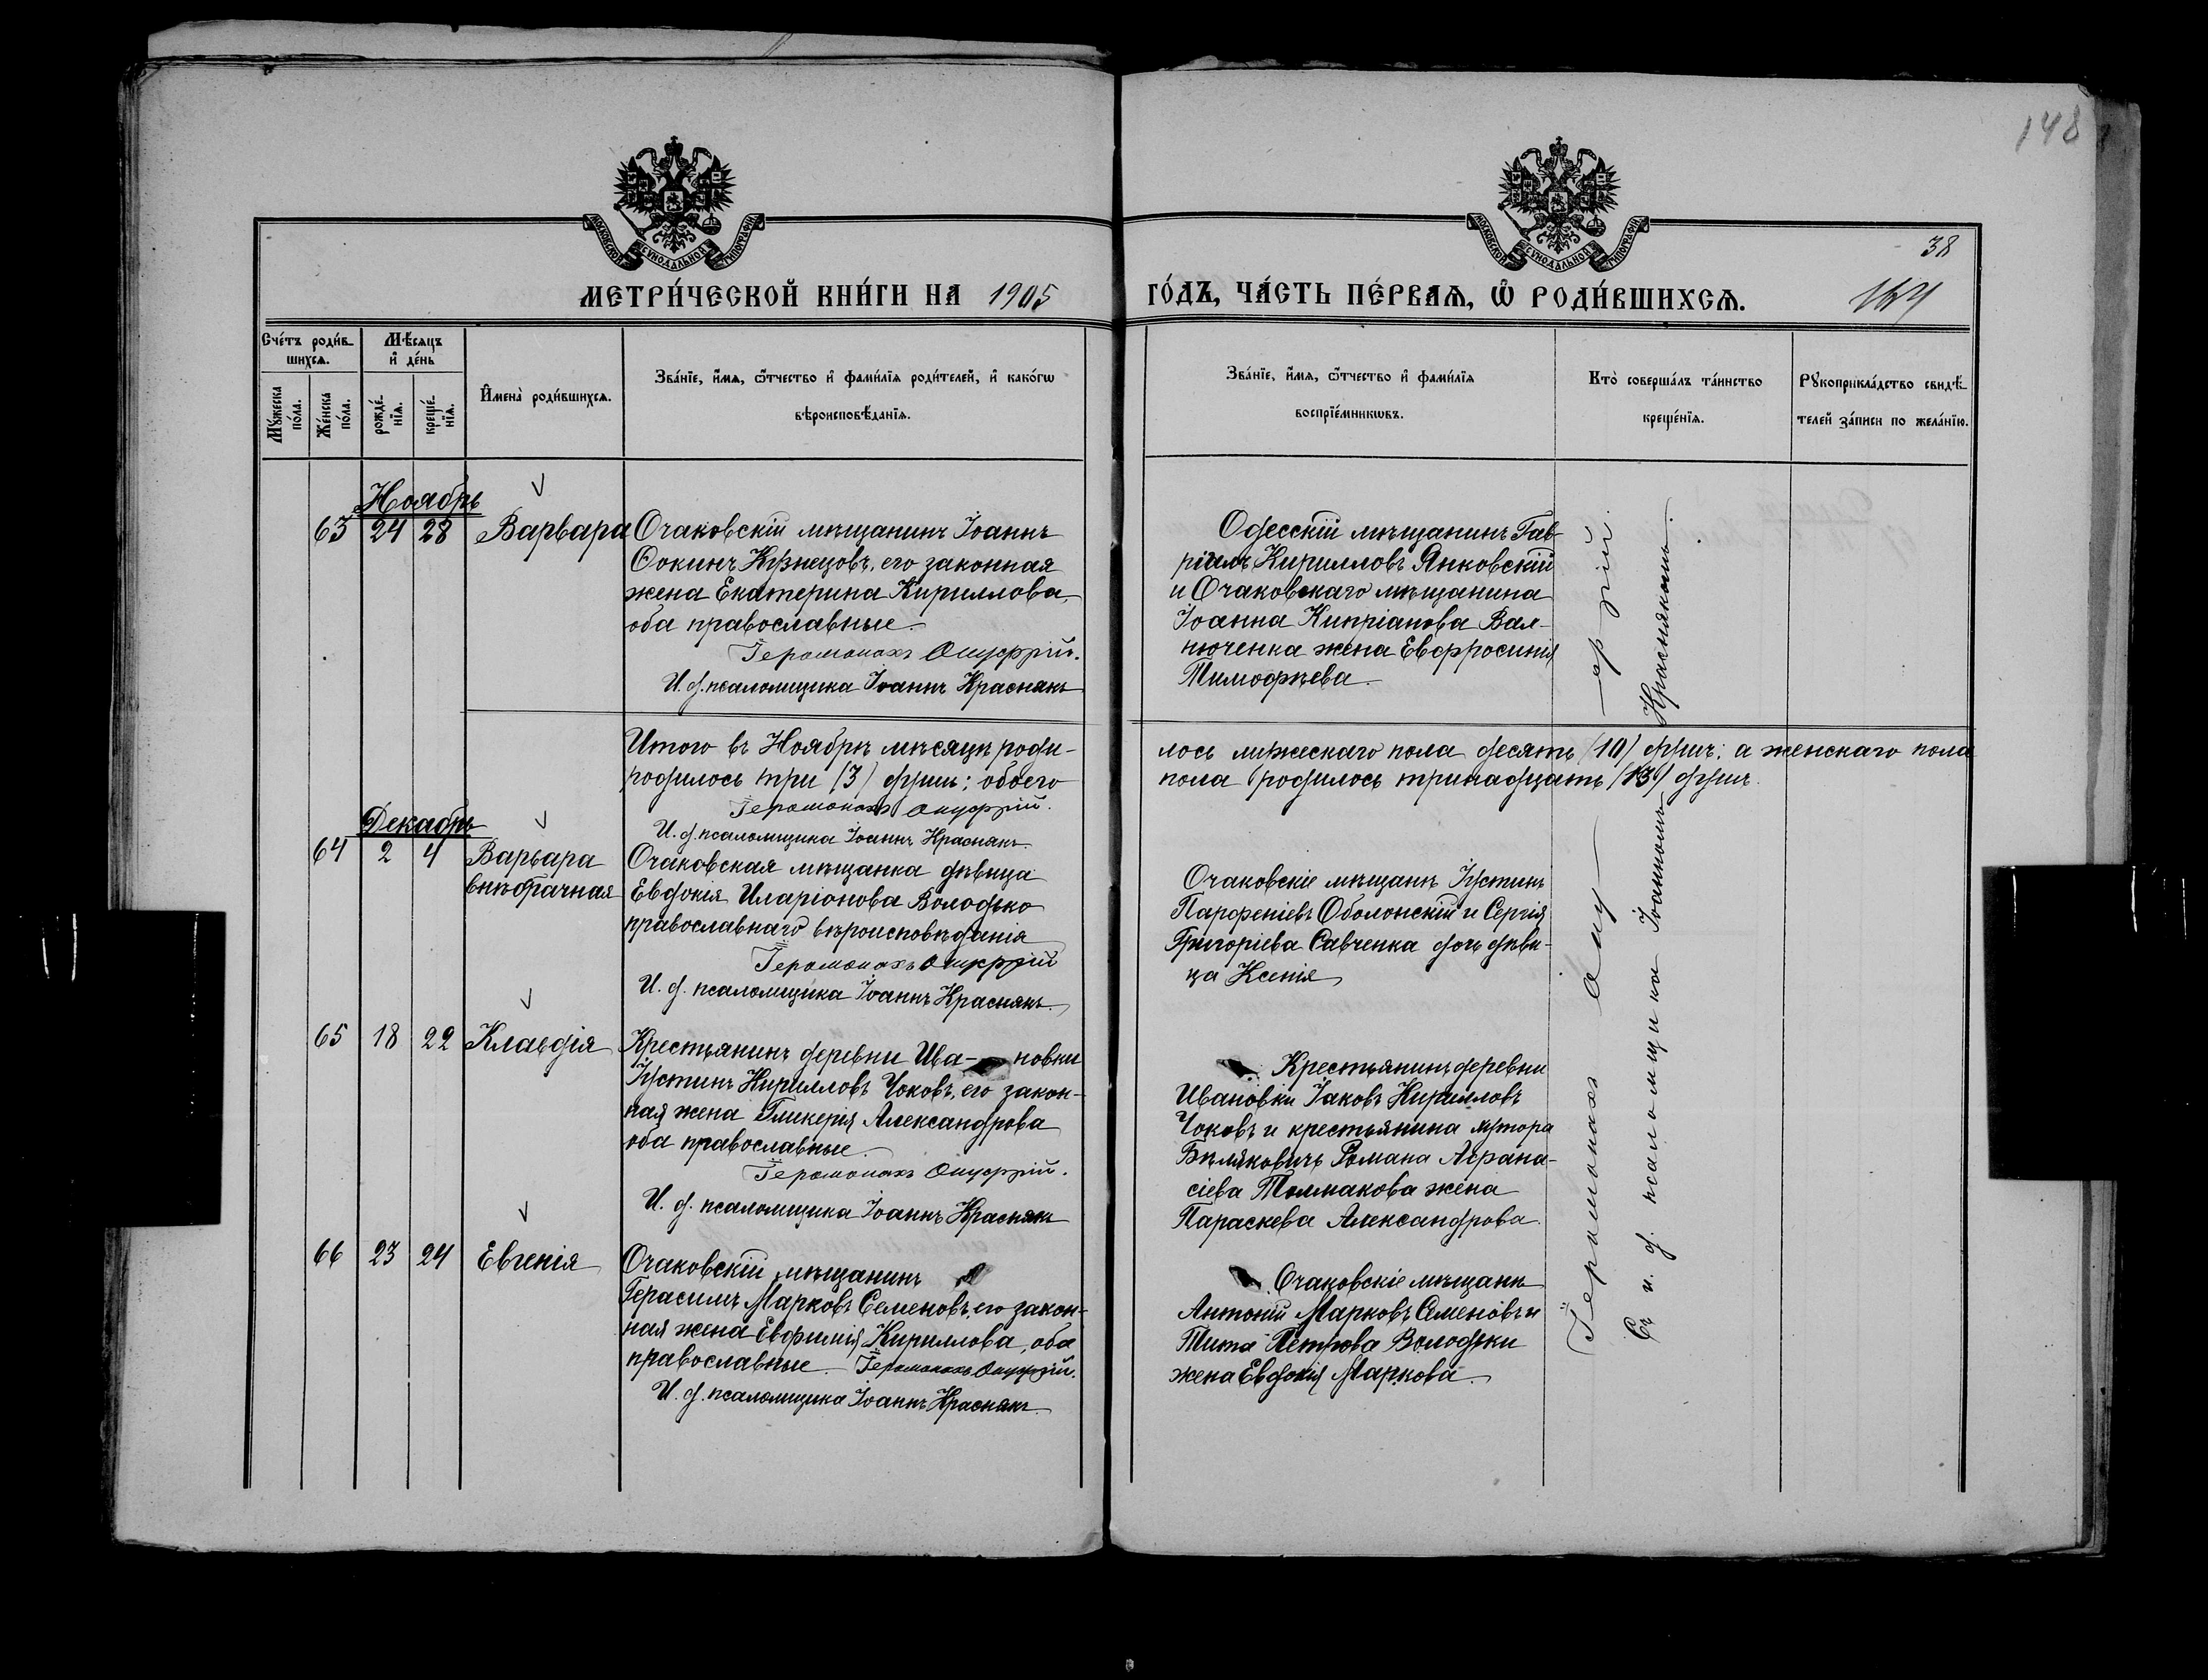 148
МОСКОВСКОЙ СѴНОДАЛЬНОЙ ТИПОГРАФІИ
МОСКОВСКОЙ СѴНОДАЛЬНОЙ ТИПОГРАФІИ
38
МЕТРИ́ЧЕСКОЙ КНИ́ГИ НА 1905
ГО́ДЪ, ЧА́СТЬ ПЕ́РВАЯ, Ѿ РОДИ́ВШИХСЯ.
Сче́тъ роди́в-
шихся.
Му́жеска по́ла.
Же́нска по́ла.
Мѣ́сяцъ
и де́нь
рожде́-
нїя.
креще́-
нїя.
Имена̀ роди́вшихся.
Зва́нїе, и́мя, ѻ́тчество и фами́лїя роди́телей, и како́гѡ
вѣроисповѣ́данїя.
Зва́нїе, и́мя, ѻ́тчество и фами́лїя
воспрїе́мникѡвъ.
Кто̀ соверша́лъ та́инство
креще́нїя.
Рꙋкоприкла́дство свидѣ́-
телей за́писи по жела́нїю.
Ноябрь
63 24 28 Варвара
Очаковскій мѣщанинъ Іоаннъ
Ѳокинъ Кузнецовъ, его законная
жена Екатерина Кириллова,
оба православные.
Іеромонахъ Онуфрій.
И. д. псаломщика Іоаннъ Краснякъ
Одесскій мѣщанинъ Гав-
ріилъ Кирилловъ Янковскій
и Очаковскаго мѣщанина
Іоанна Кипріанова Вал-
нюченка жена Евфросинія
Тимофѣева.
Итого въ Ноябрѣ мѣсяцѣ роди-
лось мужескаго пола десять (10) душъ; а женскаго пола
родилось три (3) души; обоего
пола родилось тринадцать (13) душъ.
Іеромонахъ Онуфрій.
И. д. псаломщика Іоаннъ Краснякъ.
Декабрь
64 2 4 Варвара
внѣбрачная
Очаковская мѣщанка дѣвица
Евдокія Иларіонова Володько
православнаго вѣроисповѣданія
Іеромонахъ Онуфрій
И. д. псаломщика Іоаннъ Краснякъ.
Очаковскіе мѣщане Іустинъ
Парфеніевъ Оболонскій и Сергія
Григоріева Савченка дочь дѣви-
ца Ксенія
65 18 22 Клавдія
Крестьянинъ деревни Ива- новки
Іустинъ Кирилловъ Чоковъ, его закон-
ная жена Гликерія Александрова
оба православные.
Іеромонахъ Онуфрій.
И. д. псаломщика Іоаннъ Краснякъ
Крестьянинъ деревни
Ивановки Іаковъ Кирилловъ
Чоковъ и крестьянина хутора
Бѣляковичъ Романа Афана-
сіева Толмакова жена
Параскева Александрова.
66 23 24 Евгенія
Очаковскій мѣщанинъ
Герасимъ Марковъ Семеновъ, его закон-
ная жена Евфимія Кириллова, оба
православные. Іеромонахъ Онуфрій.
И. д. псаломщика Іоаннъ Краснякъ.
Очаковскіе мѣщане
Антоній Марковъ Семеновъ и
Тита Петрова Володьки
жена Евдокія Маркова.
Іеромонахъ Ону— —фрій.
Съ и. д. псаломщика Іоанномъ Краснякомъ.